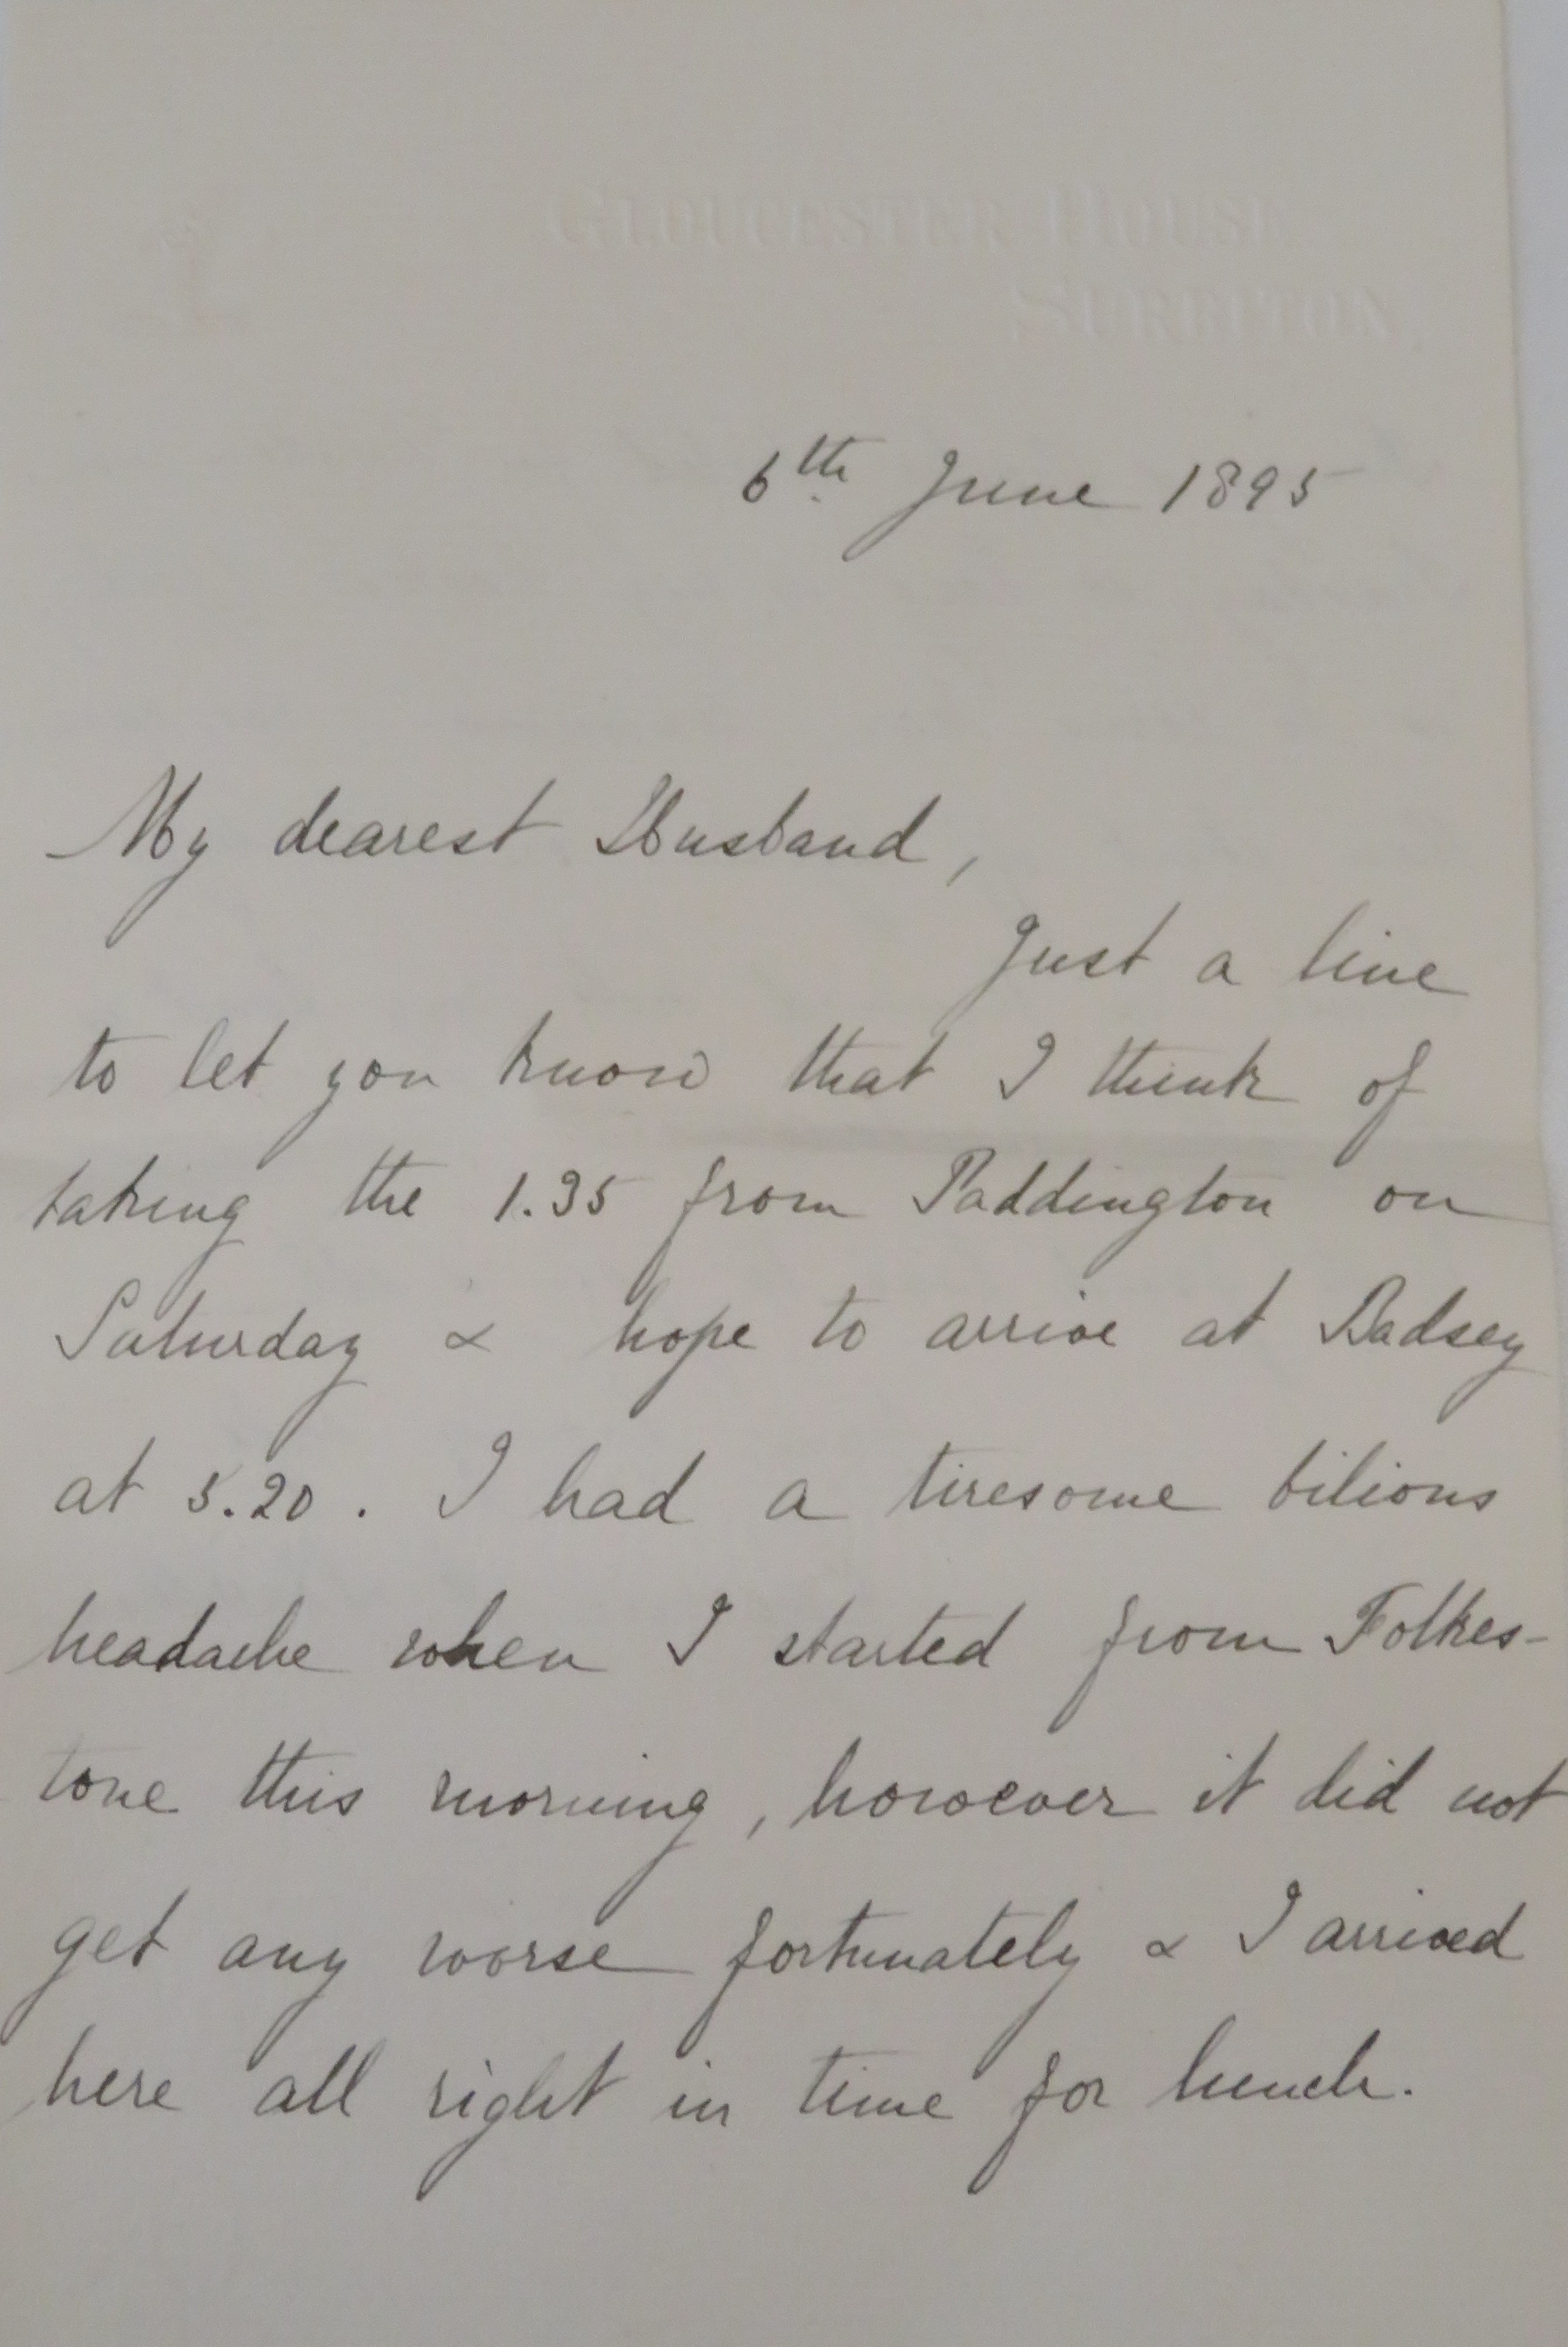 GLOUCESTER HOUSE
SURBITON
6th June 1895
My dearest Husband,
Just a line
to let you know that I think of
taking the 1.35 from Paddington on
Saturday & hope to arrive at Badsey
at 5.20. I had a tiresome bilious
headache when I started from Folkes-
tone this morning, however it did not
get any worse fortunately & I arrived
here all right in time for lunch.